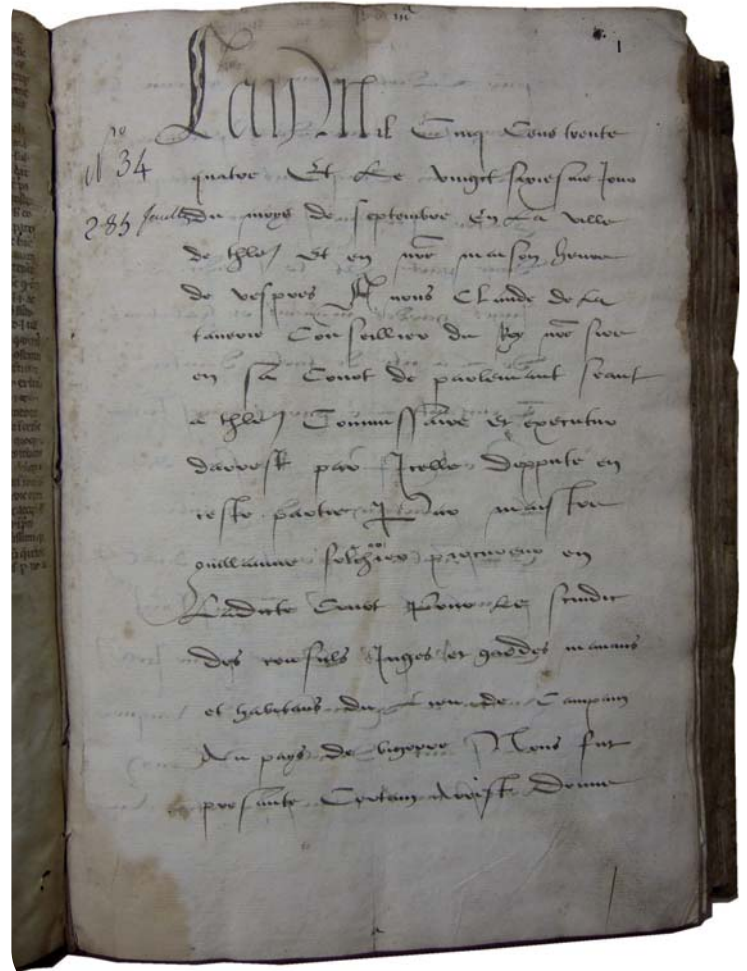 1
Lan Mil Cinq Cens trente
No 34
quatre Et Le vingt sixiesme Jour
285 feuillets
du moys de septembre En La ville
de thle et en nre maison heure
de vespres A nous Claude de La
Conseillier du Roy nre sire
en sa Court de parlemant seant
a thle Commissaire et executeur
darrest par Icelle deppute en
ceste partie par maistre
guillaume procureur en
Ladicte Court pour Le scindic
des consulz Juges et gardes manans
et habitans du Lieu de Campam
Au pays de bigorre Nous fut
presante Certain Arrest Donne